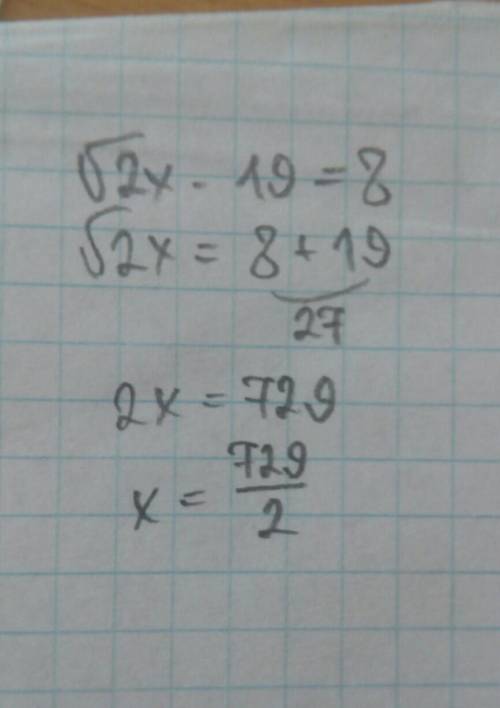 √2x - 19 = 8
√2x = 8 + 19
27
2x = 729
x = 729/2